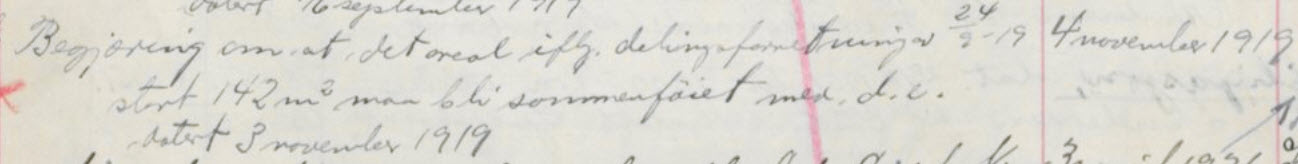 datert 16 september 1919
Begjæring om at det areal iflg. delingsforretning av 24/9-19 4 november 1919.
stort 142 m² maa bli sammenføiet med d. e.
datert 3 november 1919